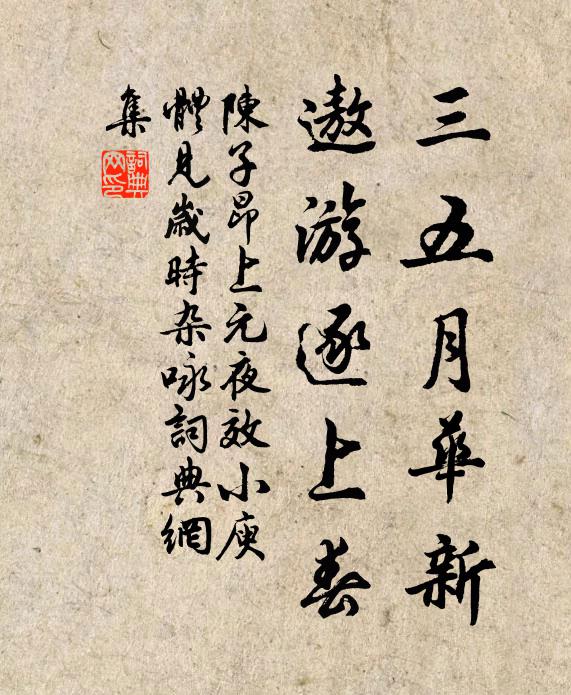 三五月華新
遨游逐上春
陳子昂上元夜效小庾
體見歲時杂咏詞典網
集
詞典网印